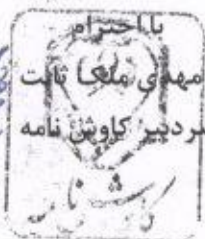 با احترام
مهدی ملک ثابت
سردبیر کاوش نامه
کاوش نامه